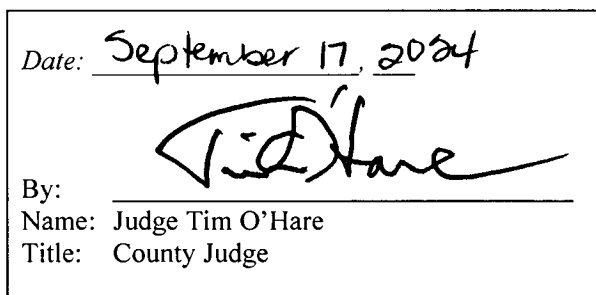 Date: September 17, 2024
Tim O'Hare
By:
Name: Judge Tim O'Hare
Title: County Judge